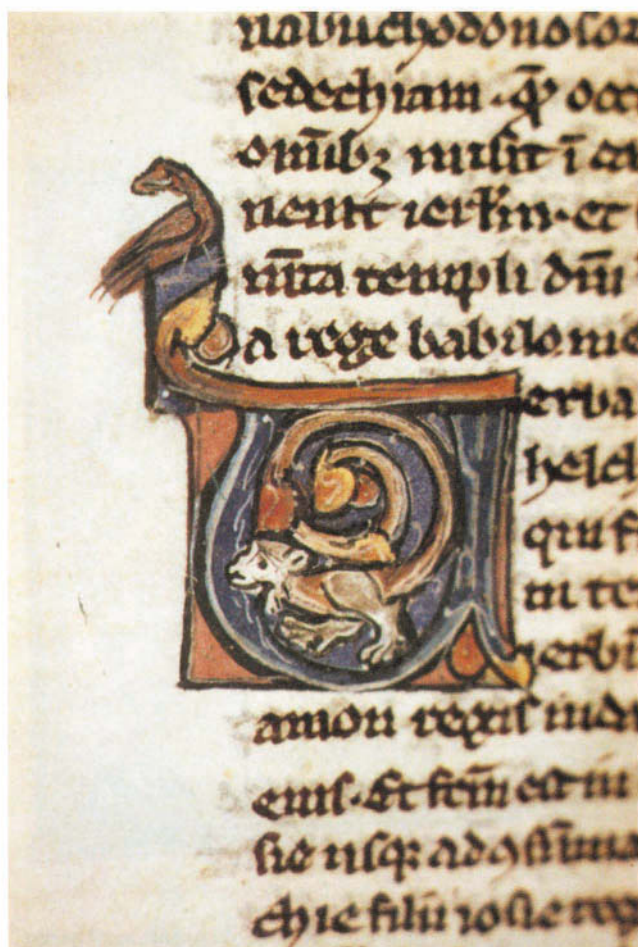 nabuchodonosor
sedechiam · qͥ occ
omīb; misit ī ca
nenit ierłm · et
mīta templi dm̄i
a rege babilonie
erba
helch
qui f
in te
uerbū
amon regis iud
eius · Et fcm̄ est in
sie usq; ad ↄsūma
chie filii iosie reg